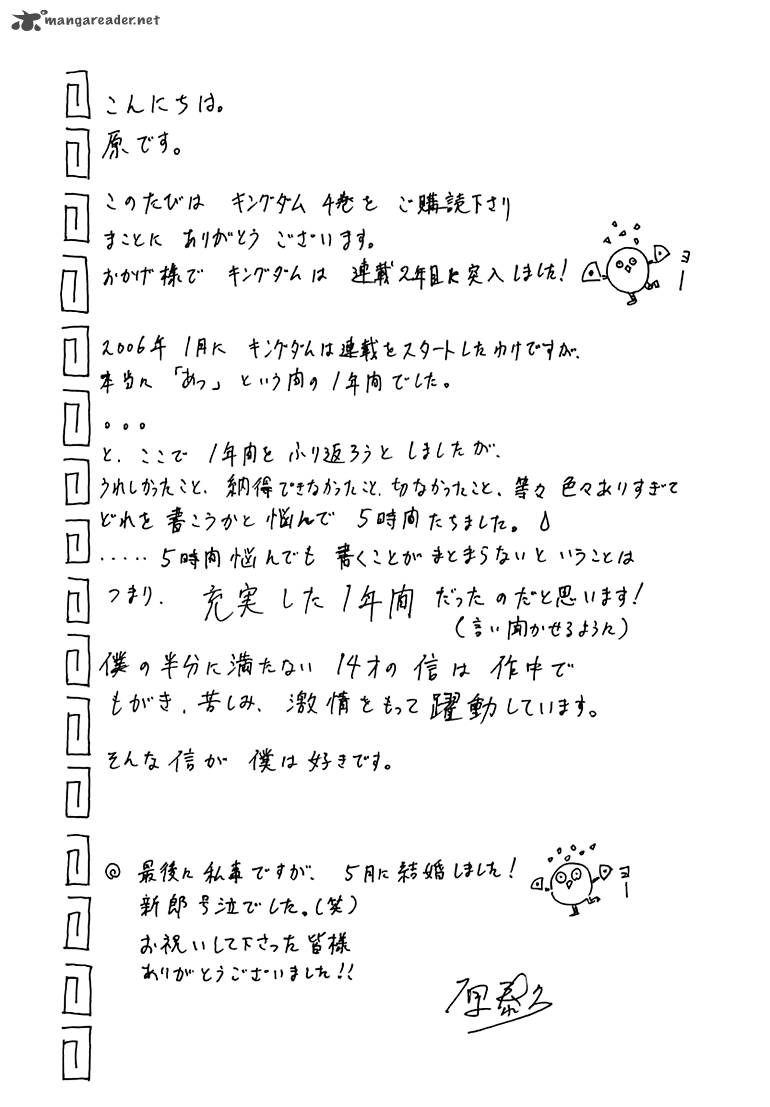 mangareader.net
こんにちは。
原です。
このたびは キングダム 4巻を ご購読下さり
まことに ありがとう ございます。
おかげ様で キングダムは 連載2年目に突入しました!
ヨー
2006年 1月に キングダムは連載をスタートしたわけですが、
本当に「あっ」という間の1年間でした。
。。。
と、ここで 1年間を ふり返ろうと しましたが、
うれしかったこと、納得できなかったこと、切なかったこと、等々 色々ありすぎて
どれを 書こうかと 悩んで 5時間たちました。
‥‥‥5時間悩んでも 書くことが まとまらないと いうことは
つまり、 充実した1年間 だったのだと思います!
(言い聞かせるように)
僕の半分に満たない 14才の 信は 作中で
もがき、苦しみ、 激情をもって 躍動しています。
そんな信が 僕は好きです。
◎ 最後に私事ですが、 5月に結婚しました!
ヨー
新郎号泣でした。(笑)
お祝いして下さった皆様
ありがとうございました!!
原泰久